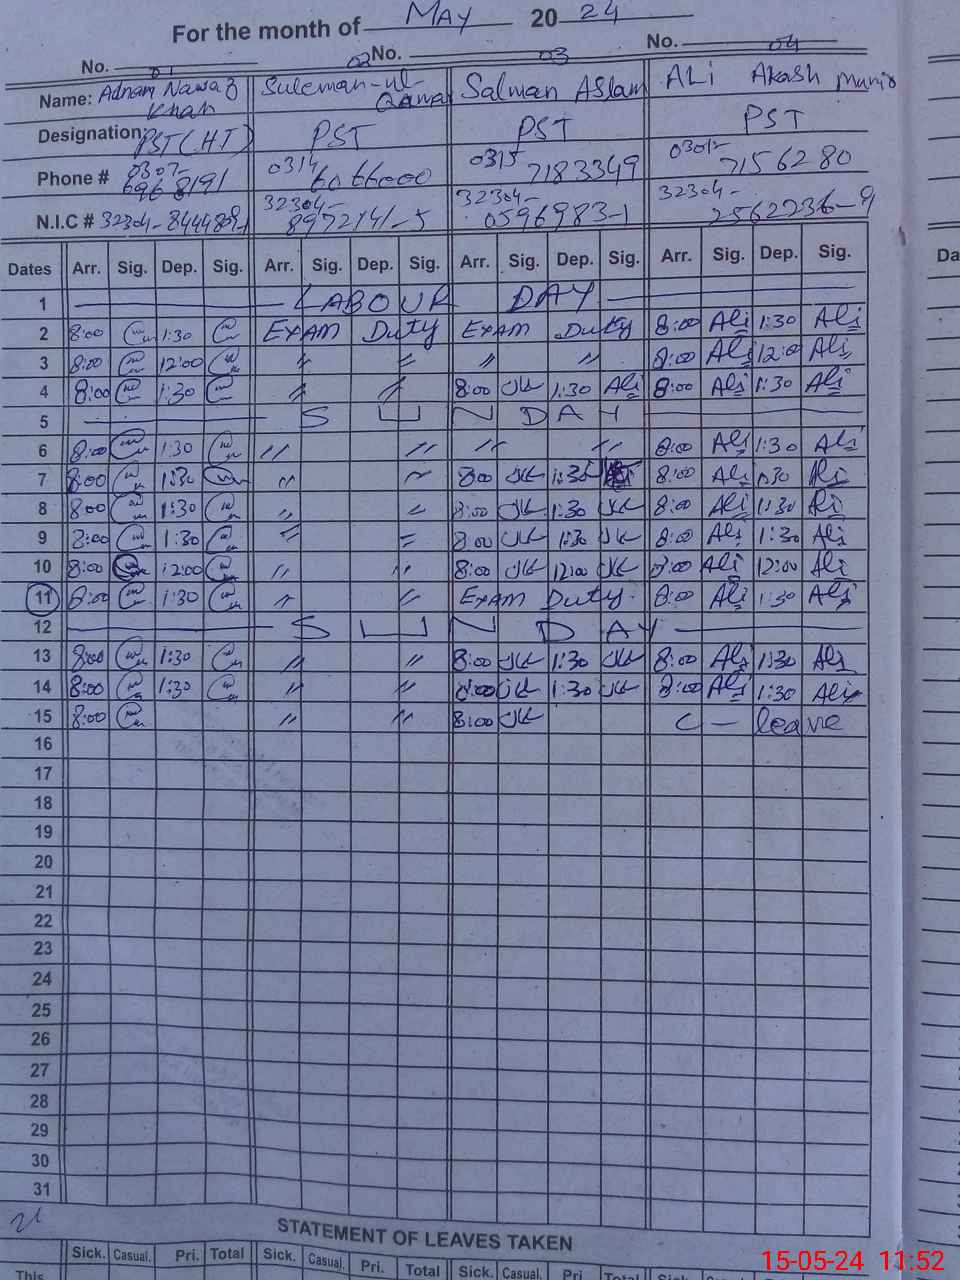 For the month of MAY 20 24
No. 01 02 No. 03 No. 04
Name: Adnan Nawaz Khan Suleman-ul- Salman Aslam ALi Akash Munir
Designation: PST (HT) PST PST PST
Phone # 0307- 6968191 0314 6066000 0315 7183349 0301- 7156280
N.I.C # 32304-8444809-1 32304- 8972141-5 32304- 0596983-1 32304- 2562236-9
Dates Arr. Sig. Dep. Sig. Arr. Sig. Dep. Sig. Arr. Sig. Dep. Sig. Arr. Sig. Dep. Sig.
1 LABOUR DAY
2 8:00 1:30 Exam Duty Exam Duty 8:00 Ali 1:30 Ali
3 8:00 12:00 〃 〃 〃 〃 8:00 Ali 12:00 Ali
4 8:00 1:30 〃 〃 8:00 1:30 Ali 8:00 Ali 1:30 Ali
5 SUNDAY
6 8:00 1:30 〃 〃 〃 〃 8:00 Ali 1:30 Ali
7 8:00 1:30 〃 〃 8:00 1:30 8:00 Ali 1:30 Ali
8 8:00 1:30 〃 〃 8:00 1:30 8:00 Ali 1:30 Ali
9 8:00 1:30 〃 〃 8:00 1:30 8:00 Ali 1:30 Ali
10 8:00 12:00 〃 〃 8:00 12:00 8:00 Ali 12:00 Ali
11 8:00 1:30 〃 〃 Exam Duty 8:00 Ali 1:30 Ali
12 SUNDAY
13 8:00 1:30 〃 〃 8:00 1:30 8:00 Ali 1:30 Ali
14 8:00 1:30 〃 〃 8:00 1:30 8:00 Ali 1:30 Ali
15 8:00 〃 〃 8:00 C - leave
16
17
18
19
20
21
22
23
24
25
26
27
28
29
30
31
STATEMENT OF LEAVES TAKEN
Sick. Casual. Pri. Total Sick. Casual. Pri. Total Sick. Casual. Pri. Total Sick.
This
15-05-24 11:52